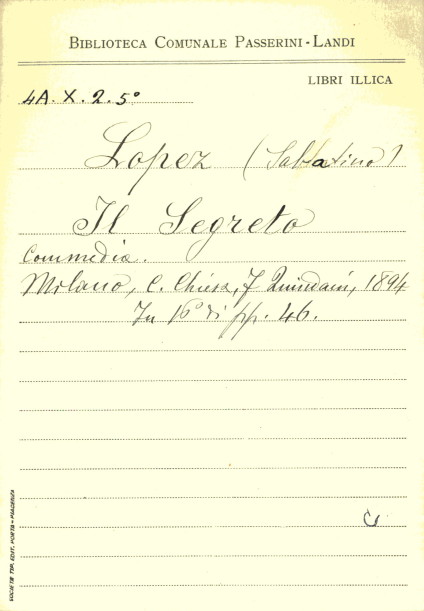 BIBLIOTECA COMUNALE PASSERINI-LANDI
LIBRI ILLICA
4A. X. 2. 5°
Lopez (Sabatino)
Il Segreto
Commedia.
Milano, C. Chiesa, F. Guindani, 1894
In 16° di pp. 46.
SOCIETÀ TIP. EDIT. PORTA - PIACENZA